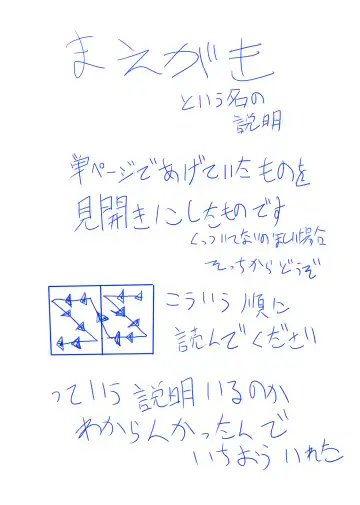 まえがき
という名の
説明
単ページであげていたものを
見開きにしたものです
くっついてないのほしい場合
そっちからどうぞ
こういう順に
読んでください
っていう説明いるのか
わからんかったんで
いちおういれた